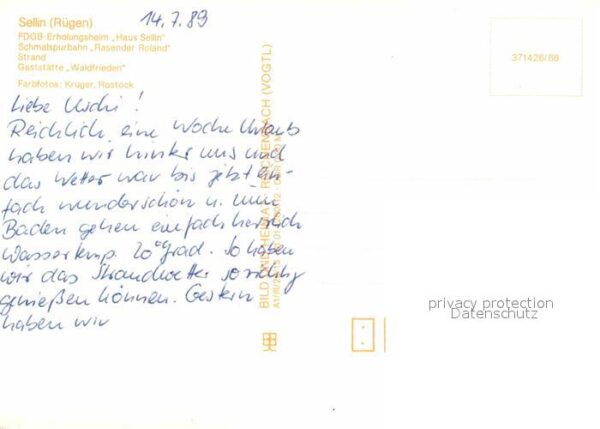 Sellin (Rügen)
14.7.89
FDGB-Erholungsheim „Haus Sellin“
Schmalspurbahn „Rasender Roland“
Strand
Gaststätte „Waldfrieden“
Farbfotos: Kruger, Rostock
371426/88
Liebe Uschi!
Reichlich eine Woche Urlaub
haben wir hinter uns und
das Wetter war bis jetzt ein-
fach wunderschön u. zum
Baden gehen einfach herrlich
Wassertemp. 20° Grad. So haben
wir das Strandwetter so richtig
genießen können. Gestern
haben wir
BILD UND HEIMAT REICHENBACH (VOGTL)
privacy protection
Datenschutz